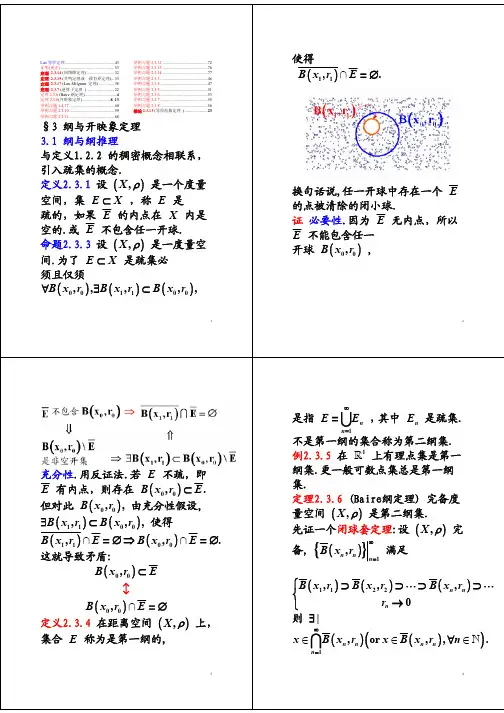 §3 纲与开映象定理
3.1 纲与纲推理
与定义1.2.2 的稠密概念相联系,
引入疏集的概念.
定义2.3.1 设 (X,ρ) 是一个度量
空间, 集 E⊂X , 称 E 是
疏的, 如果 E̅ 的内点在 X 内是
空的. 或 E̅ 不包含任一开球.
命题2.3.3 设 (X,ρ) 是一度量空
间. 为了 E⊂X 是疏集必
须且仅须
∀B(x₀,r₀),∃B(x₁,r₁)⊂B(x₀,r₀),
使得
B̅(x₁,r₁)∩E̅=∅.
B(x₁,r₁)
B(x₀,r₀)
换句话说,任一开球中存在一个 E̅
的点被清除的闭小球.
证 必要性.因为 E̅ 无内点, 所以
E̅ 不能包含任一
开球 B(x₀,r₀) ,
E̅ 不包含 B(x₀,r₀) ⇒ B̅(x₁,r₁)∩E̅=∅
⇓ ⇑
B(x₀,r₀)\E̅
是非空开集 ⇒ ∃B̅(x₁,r₁)⊂B(x₀,r₀)\E̅
充分性.用反证法.若 E 不疏, 即
E̅ 有内点, 则存在 B(x₀,r₀)⊂E̅.
但对此 B(x₀,r₀), 由充分性假设,
∃B(x₁,r₁)⊂B(x₀,r₀), 使得
B̅(x₁,r₁)∩E̅=∅⇒B(x₀,r₀)∩E̅=∅.
这就导致矛盾:
B(x₀,r₀)⊂E̅
↕
B(x₀,r₀)∩E̅=∅
定义2.3.4 在距离空间 (X,ρ) 上,
集合 E 称为是第一纲的,
是指 E=⋃ₙ₌₁^∞ Eₙ , 其中 Eₙ 是疏集.
不是第一纲的集合称为第二纲集.
例2.3.5 在 ℝ¹ 上有理点集是第一
纲集.更一般可数点集总是第一纲
集.
定理2.3.6 (Baire纲定理) 完备度
量空间 (X,ρ) 是第二纲集.
先证一个闭球套定理:设 (X,ρ) 完
备, {B̅(xₙ,rₙ)}ₙ₌₁^∞ 满足
{ B̅(x₁,r₁)⊃B̅(x₂,r₂)⊃⋯⊃B̅(xₙ,rₙ)⊃⋯
rₙ→0
则 ∃|
x∈⋂ₙ₌₁^∞ B̅(xₙ,rₙ)(or x∈B̅(xₙ,rₙ),∀n∈ℕ).